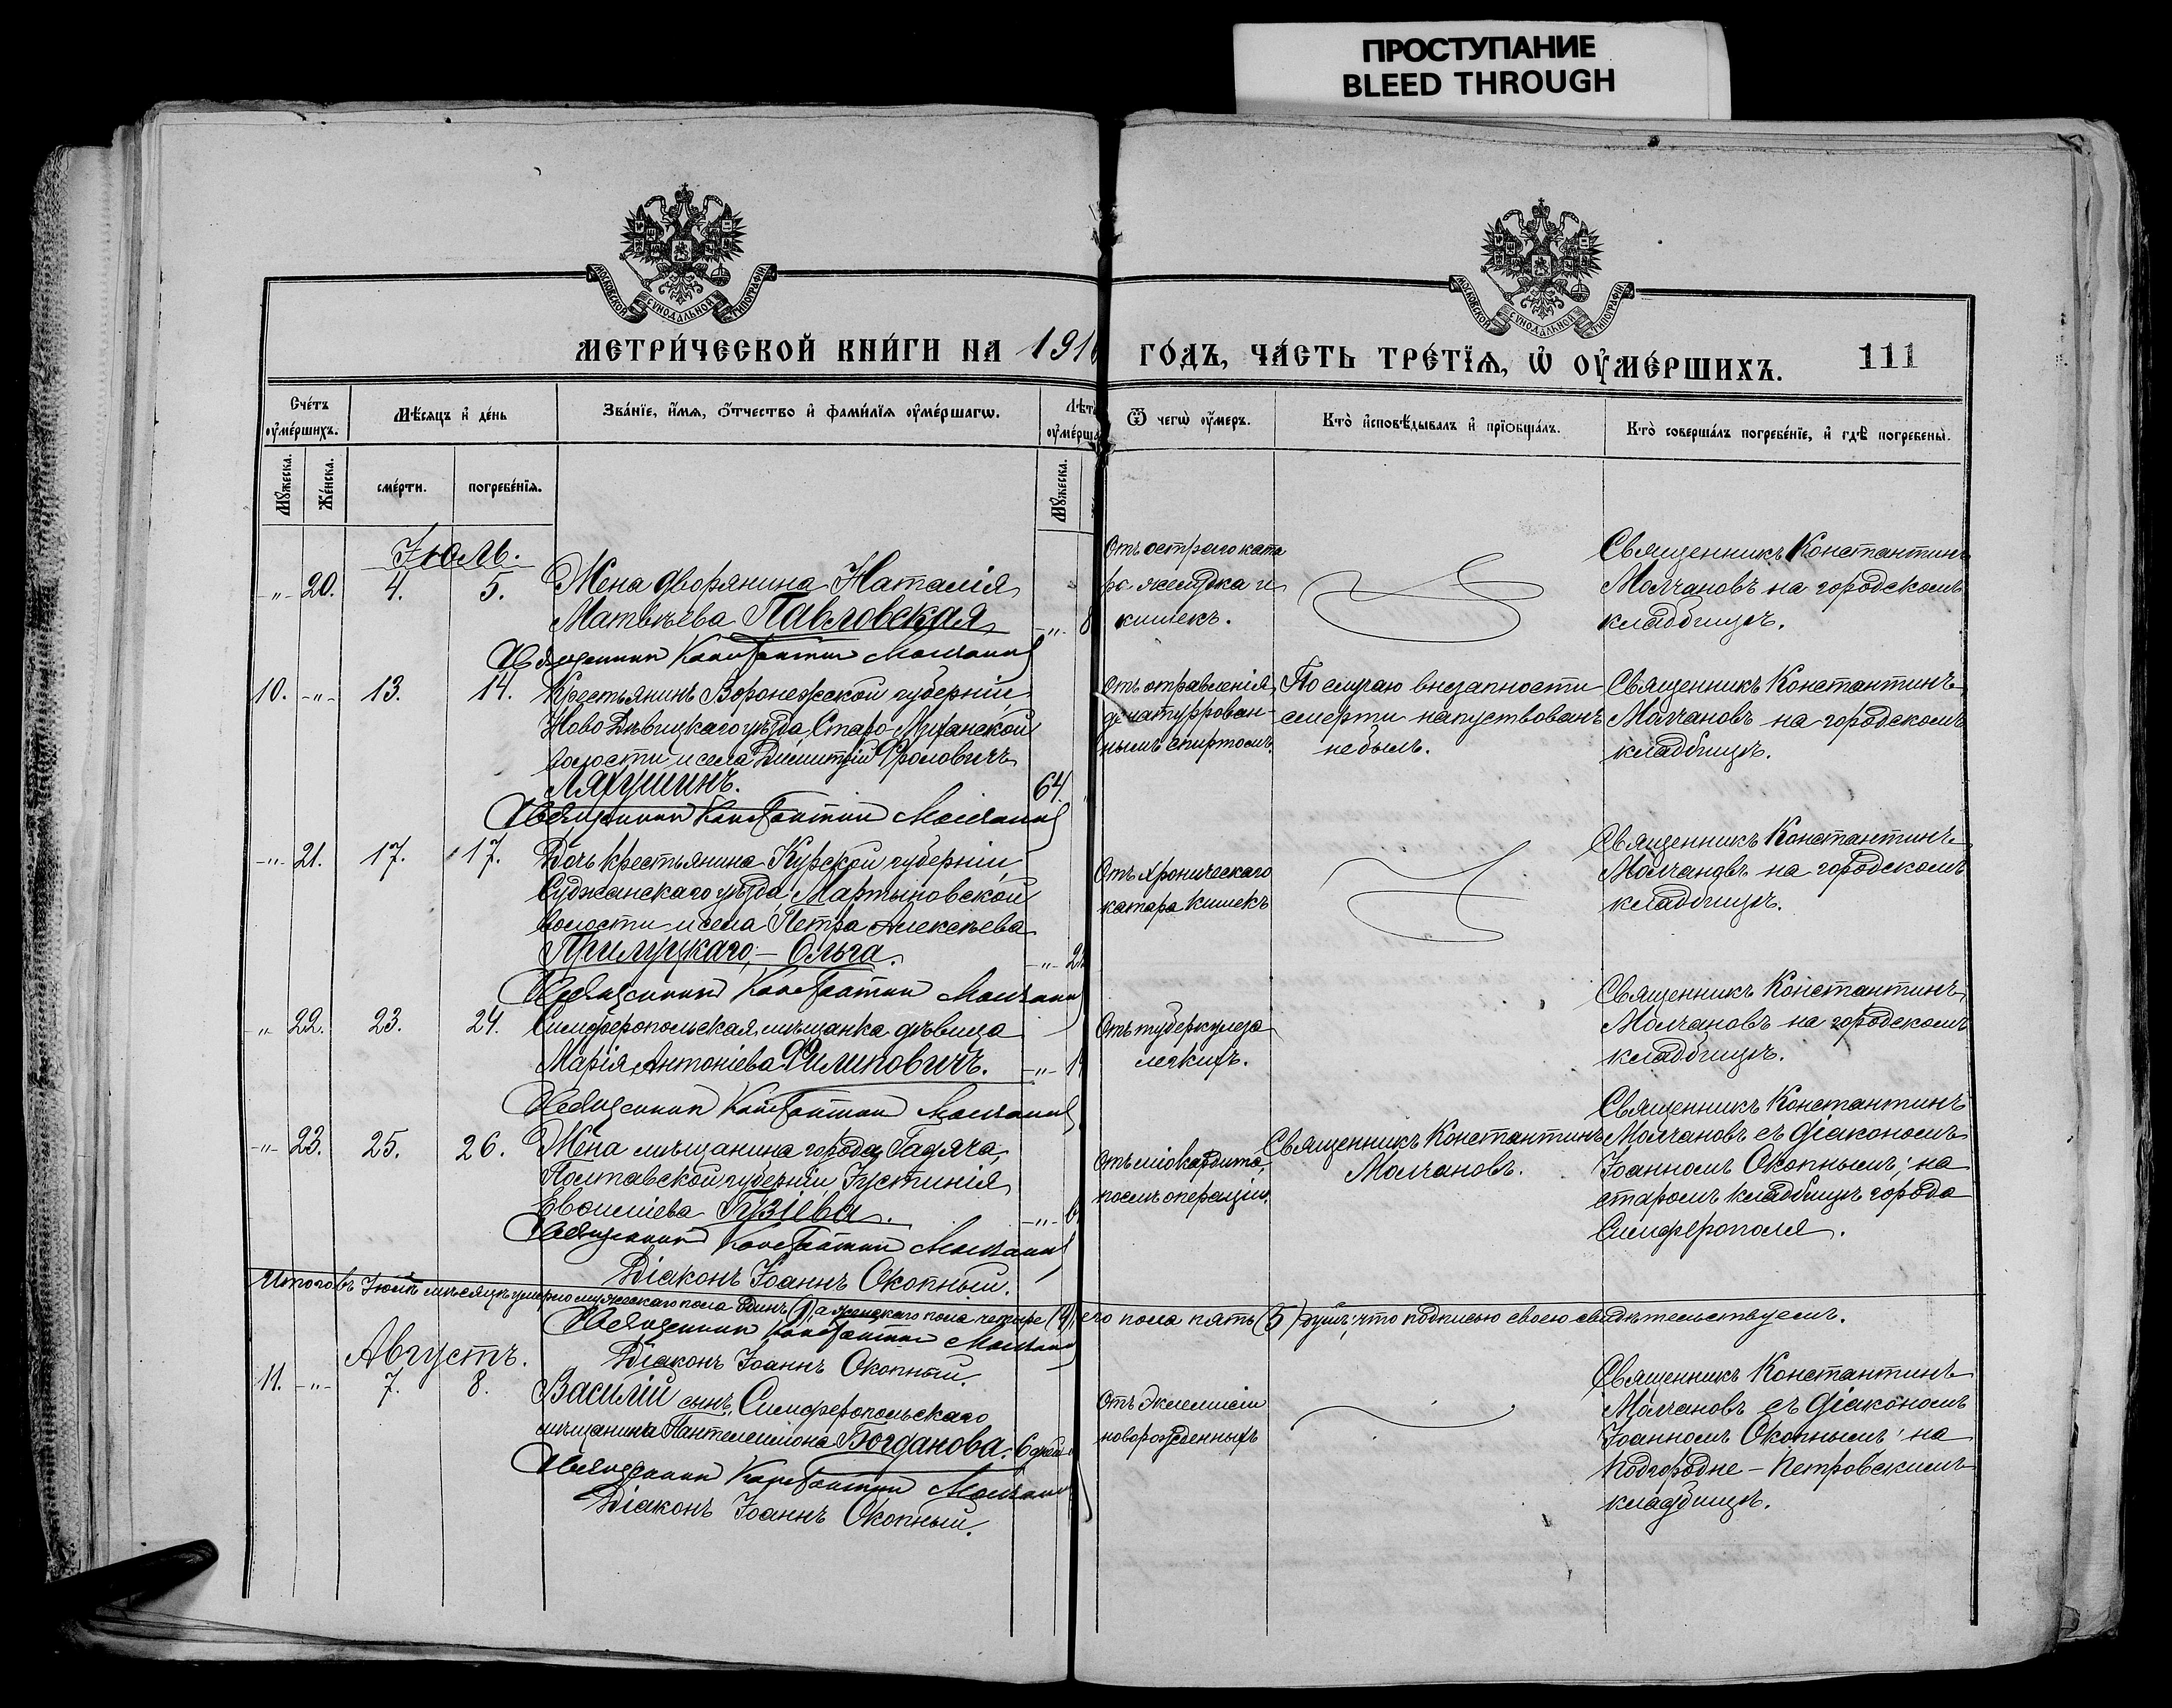 ПРОСТУПАНИЕ
BLEED THROUGH
МОСКОВСКОЙ СѴНОДАЛЬНОЙ ТИПОГРАФІИ
МОСКОВСКОЙ СѴНОДАЛЬНОЙ ТИПОГРАФІИ
МЕТРИ́ЧЕСКОЙ КНИ́ГИ НА 191
ГО́ДЪ, ЧА́СТЬ ТРЕ́ТІѦ, Ѡ҆ ОУ҆МЕ́РШИХЪ.
111
Сче́тъ оу҆ме́ршихъ.
Мѣ́сяцъ и҆ де́нь
Зва́нїе, и҆́мя, ѻ҆́тчество и҆ фами́лїя оу҆ме́ршагѡ.
Лѣт
оу҆ме́рша
Ѿ чегѡ̀ оу҆́меръ.
Кто̀ и҆сповѣ́дывалъ и҆ прїѡбща́лъ.
Кто̀ соверша́лъ погребе́нїе, и҆ гдѣ̀ погребены̀.
Мꙋ́жеска.
Же́нска.
сме́рти.
погребе́нїя.
Мꙋ́жеска.
Іюль.
-"- 20. 4. 5. Жена дворянина Наталія
Матѳѣева Павловская -"- 8
Священник Константин Молчанов
Отъ остраго ката
ра желудка и
кишекъ.
Священникъ Константинъ
Молчановъ на городскомъ
кладбищѣ.
10. -"- 13. 14. Крестьянинъ Воронежской губерніи
Ново Дѣвицкаго уѣзда, Старо-
волости и села Димитрій Фроловичъ
64.
Священник Константин Молчанов
Отъ отравленія
денатуррован-
нымъ спиртомъ.
По случаю внезапности
смерти напутствованъ
не былъ.
Священникъ Константинъ
Молчановъ на городскомъ
кладбищѣ.
-"- 21. 17. 17. Дочь крестьянина Курской губерніи
Суджанскаго уѣзда, Мартыновской
волости и села Петра Алексѣева
Прилуцкаго, - Ольга. -"- 2
Священник Константин Молчанов
Отъ хроническаго
катара кишекъ
Священникъ Константинъ
Молчановъ на городскомъ
кладбищѣ.
-"- 22. 23. 24. Симферопольская мѣщанка дѣвица
Марія Антоніева Филиповичъ. -"- 1
Священник Константин Молчанов
Отъ туберкулеза
легкихъ.
Священникъ Константинъ
Молчановъ на городскомъ
кладбищѣ.
-"- 23. 25. 26. Жена мѣщанина города Гадяча
Полтавской губерніи Іустинія
Евѳиміева Гузіева. -"- 6
Священник Константин Молчанов
Діаконъ Іоаннъ Окопный.
Отъ міокардита,
послѣ операціи.
Священникъ Константинъ
Молчановъ.
Священникъ Константинъ
Молчановъ съ діакономъ
Іоанномъ Окопнымъ; на
старомъ кладбищѣ города
Симферополя.
Итого въ Іюлѣ мѣсяцѣ умерло мужескаго пола одинъ (1), а женскаго пола четыре (4), его пола пять (5) душъ; что подписью своею свидѣтельствуемъ.
Священник Константин Молчанов
Діаконъ Іоаннъ Окопный.
Августъ.
11. -"- 7. 8. Василій сынъ Симферопольскаго
мѣщанина Пантелеимона Богданова. 6 дней
Священник Константин Молчанов
Діаконъ Іоаннъ Окопный.
Отъ эклемпсіи
новорожденныхъ
Священникъ Константинъ
Молчановъ съ діакономъ
Іоанномъ Окопнымъ; на
Подгородне-Петровскимъ
кладбищѣ.